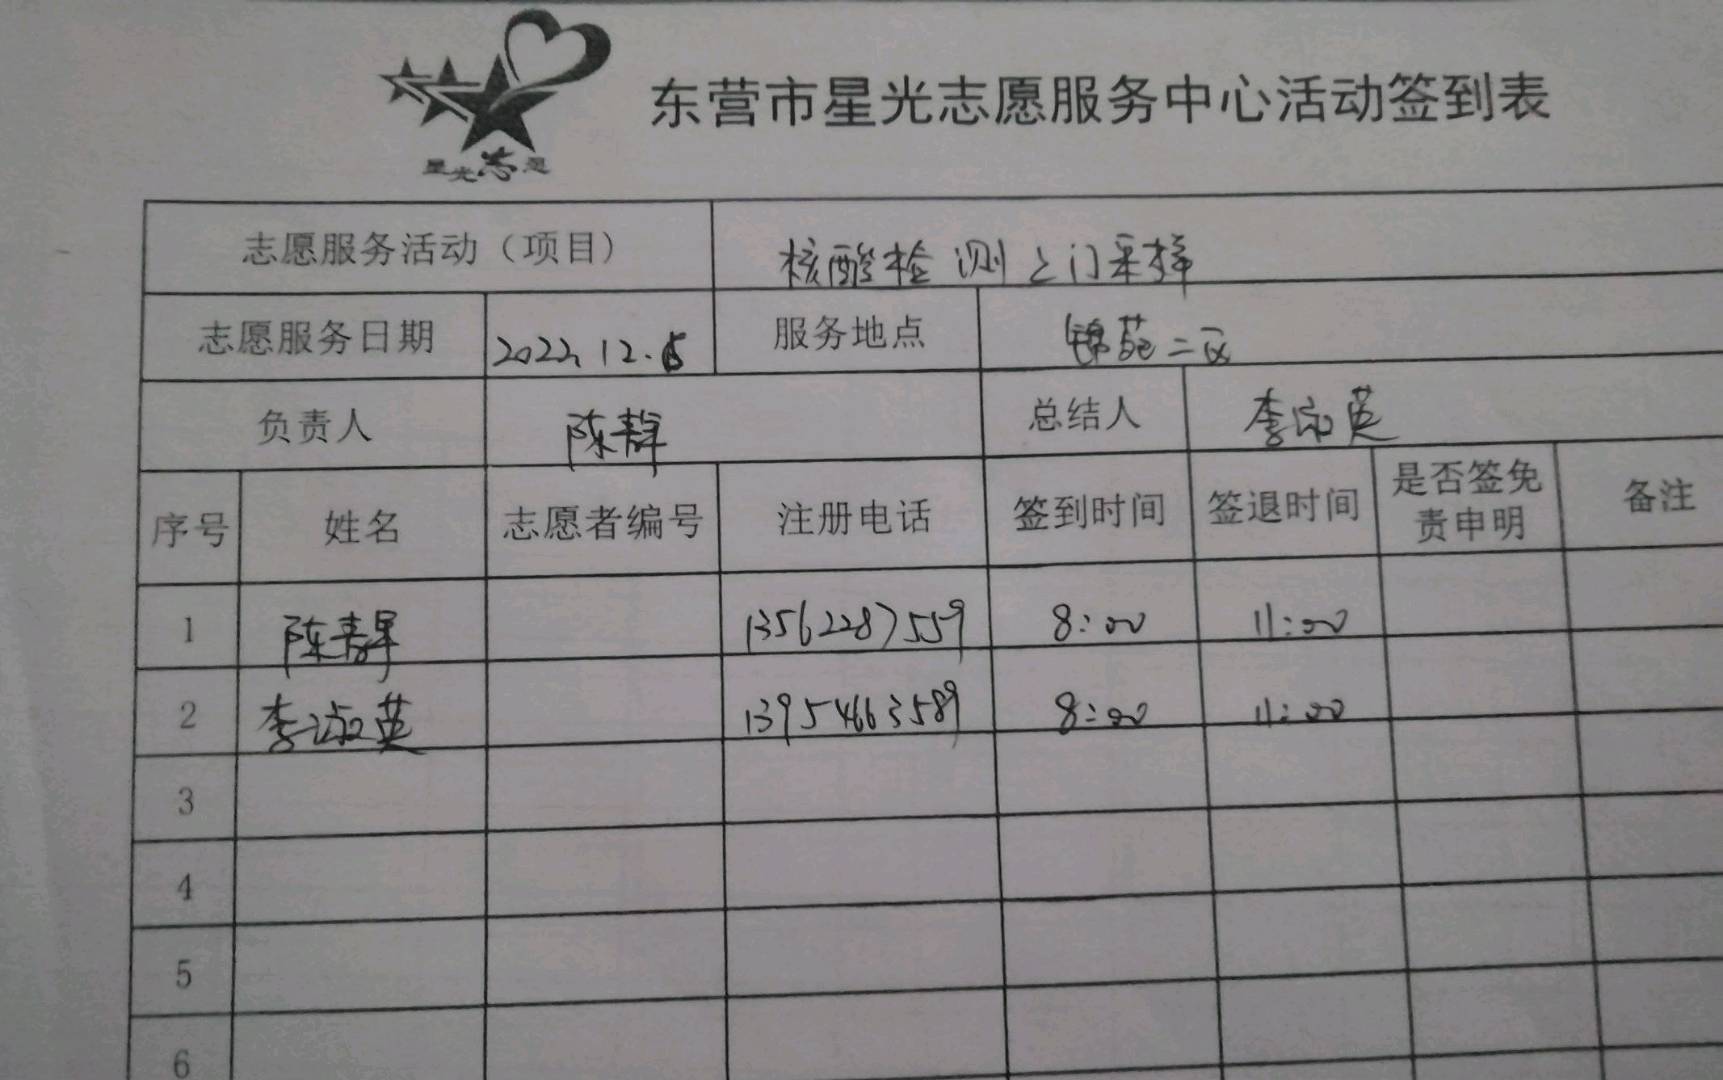 东营市星光志愿服务中心活动签到表
星光志愿
志愿服务活动（项目） 核酸检测上门采样
志愿服务日期 2022.12.6 服务地点 锦苑二区
负责人 陈 总结人 李淑英
序号 姓名 志愿者编号 注册电话 签到时间 签退时间 是否签免责申明 备注
1 陈 13562287559 8:00 11:00
2 李淑英 13954663589 8:00 11:00
3
4
5
6